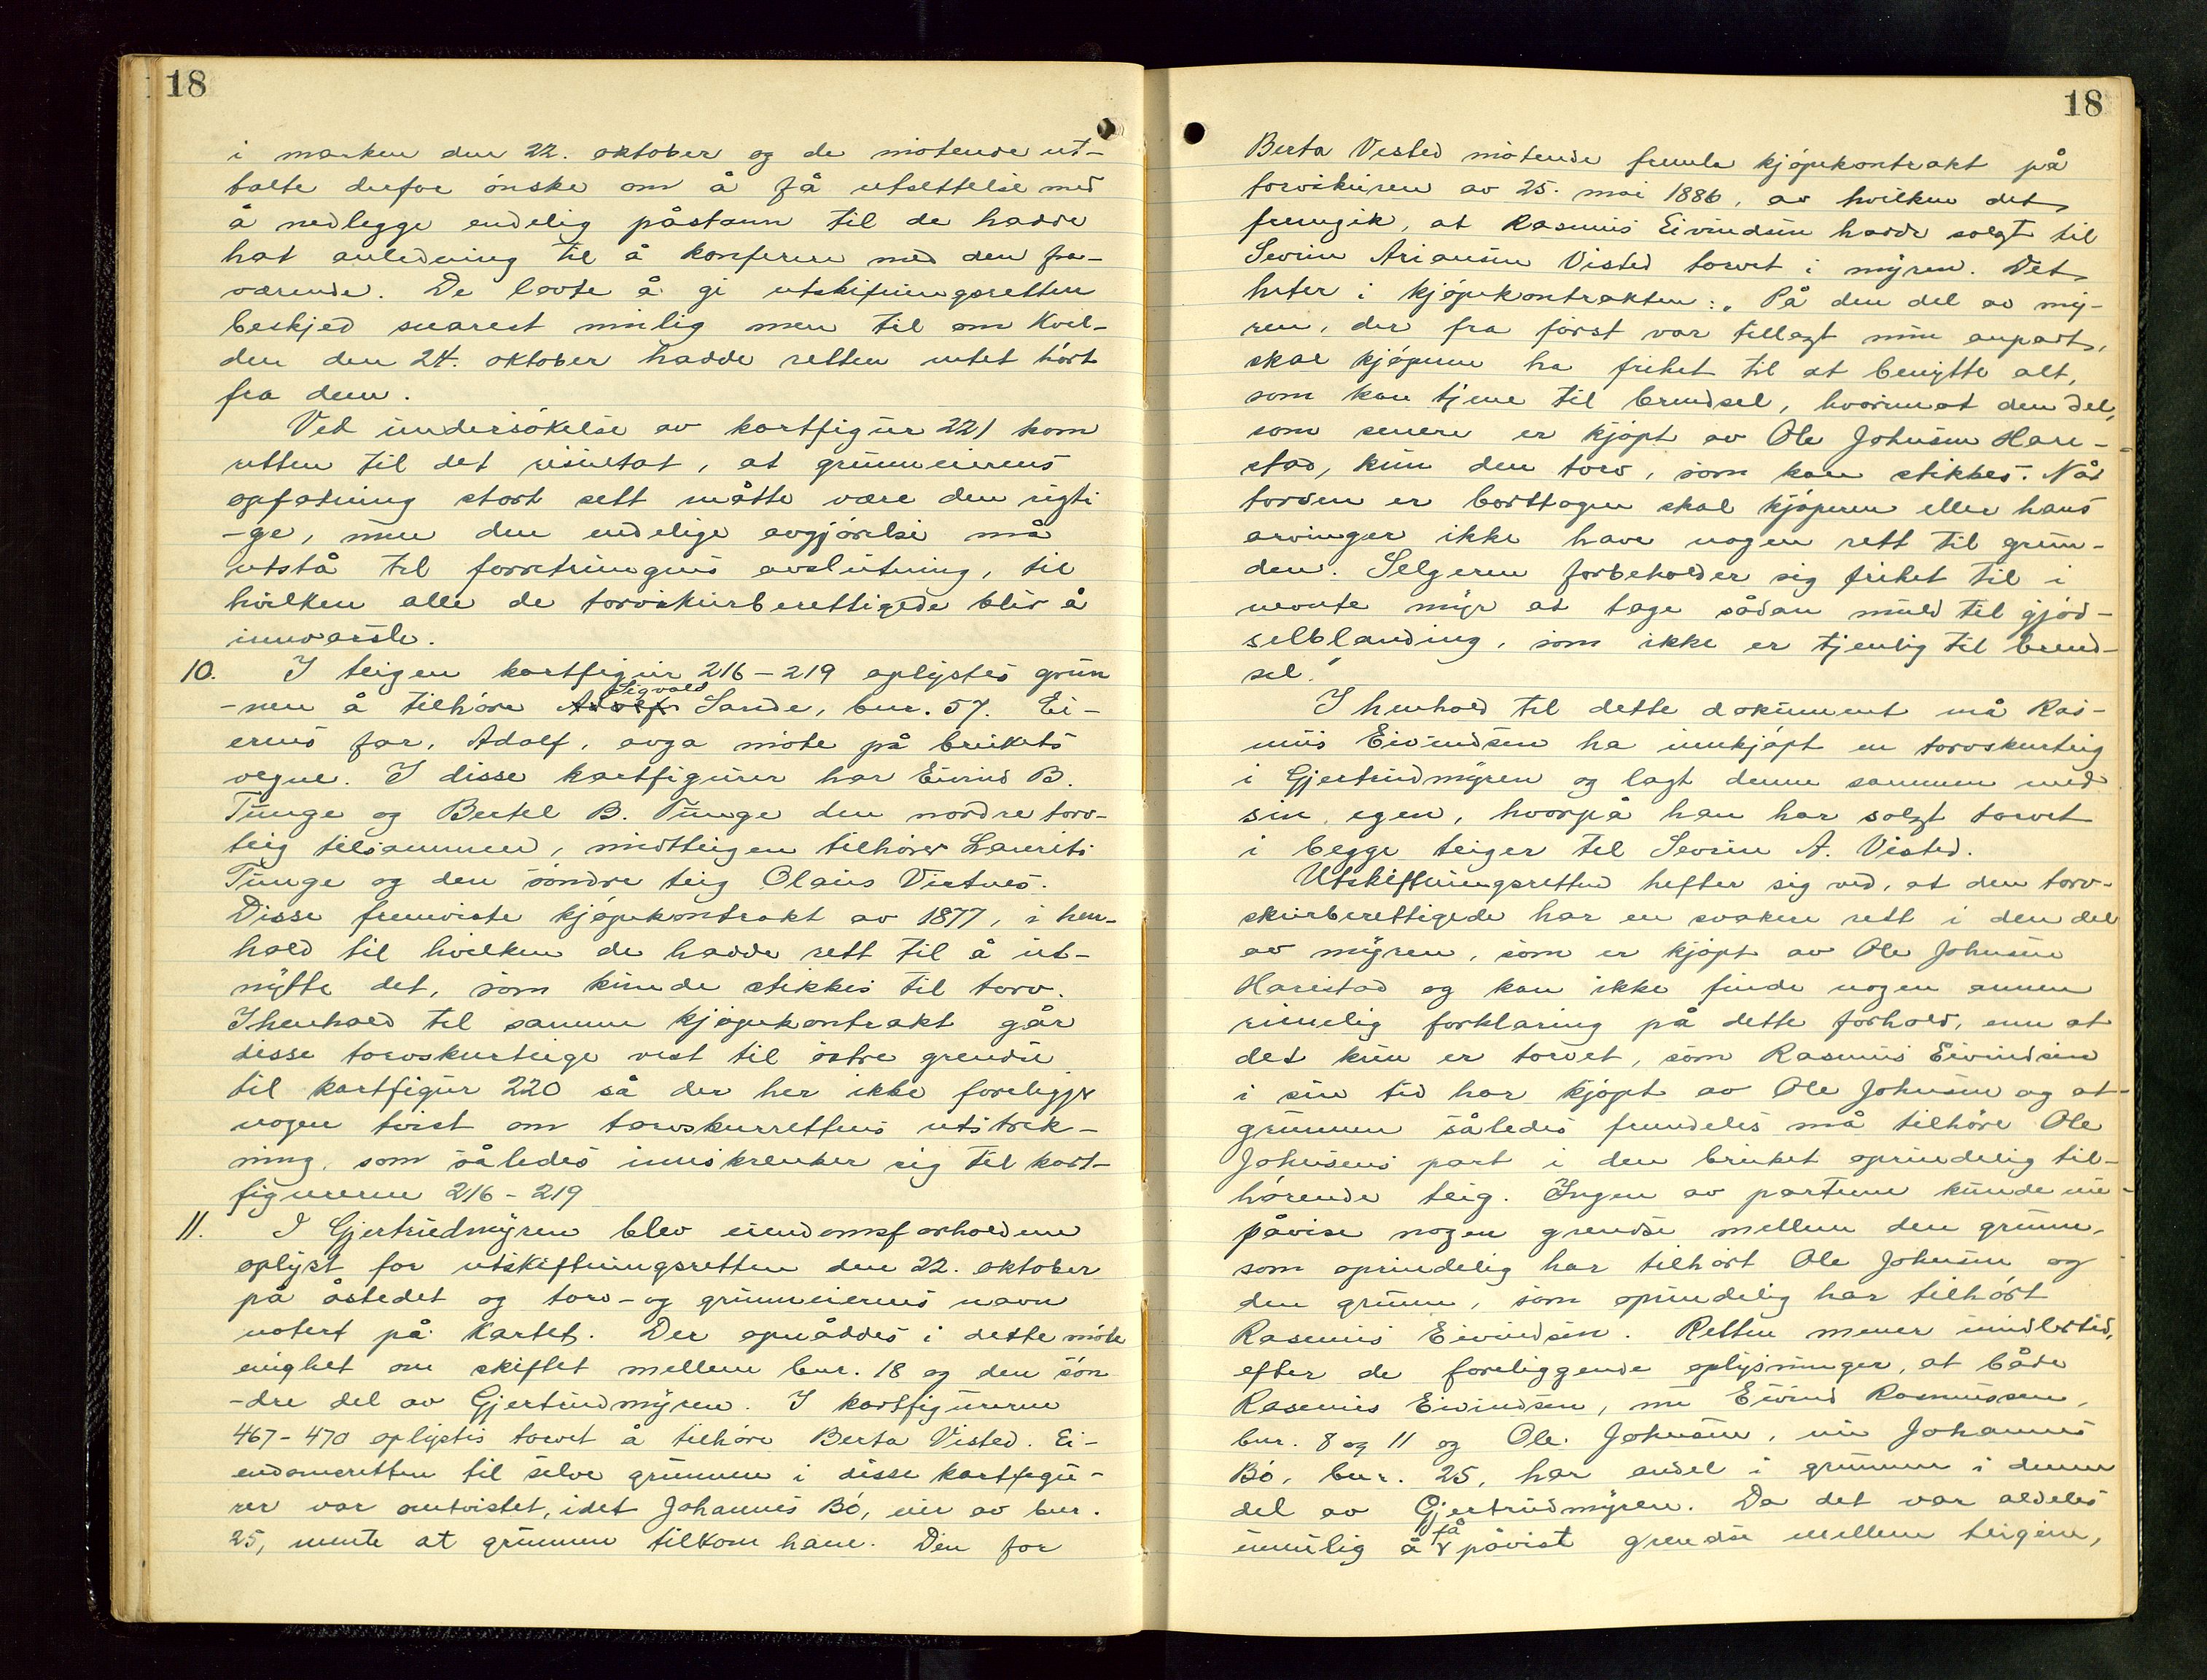 18
i marken den 22. oktober og de møtende ut-
talte derfor ønske om å få utsettelse med
å nedlegge endelig påstann til de hadde
hat anledning til å konferere med den fra-
værende. De lovte å gi utskiftningsretten
beskjed snarest mulig men til om kvel-
den den 24. oktober hadde retten intet hørt
fra dem.
Ved undersøkelse av kartfigur 221 kom
retten til det resultat, at grunneierens
opfatning stort sett måtte være den rigti
-ge, men den endelige avgjørelse må
utstå til forretningens avslutning, til
hvilken alle de torvskurberettigede blir å
innvarsle.
10. I teigen kartfigur 216-219 oplystes grun
-nen å tilhøre Adolf Sigvald Sande, bnr. 57. Ei-
erens far, Adolf, avga møte på brukets
vegne. I disse kartfigurer har Eivind B.
Tunge og Bertel B. Tunge den nordre torv-
teig tilsammen, midtteigen tilhører Laurits
Tunge og den søndre teig Olaus Vistnes.
Disse fremviste kjøpekontrakt av 1877, i hen-
hold til hvilken de hadde rett til å ut-
nytte det, som kunde stikkes til torv.
I henhold til samme kjøpekontrakt går
disse torvskurteige vest til østre grendse
til kartfigur 220 så der her ikke foreligger
nogen tvist om torvskurrettens utstrek-
ning, som således innskrenker sig til kart-
figurerne 216-219
11. I Gjertrudmyren blev eiendomsforholdene
oplyst for utskiftningsretten den 22. oktober
på åstedet og torv- og grunneiernes navn
notert på kartet. Der opnåddes i dette møte
enighet om skiftet mellem bnr. 18 og den søn
-dre del av Gjertrudmyren. I kartfigurerne
467-470 oplystes torvet å tilhøre Berta Visted. Ei-
endomsretten til selve grunnen i disse kartfigu-
rer var omtvistet, idet Johannes Bø, eier av bnr.
25, mente at grunnen tilkom ham. Den for
18
Berta Visted møtende fremla kjøpekontrakt på
torvskuren av 25. mai 1886, av hvilken det
fremgik, at Rasmus Eivindsen hadde solgt til
Sevrin Ariansen Visted torvet i myren. Det
heter i kjøpekontrakten: „På den del av my-
ren, der fra først var tillagt min anpart,
skal kjøperen ha frihet til at benytte alt,
som kan tjene til brendsel, hvorimot den del,
som senere er kjøpt av Ole Johnsen Hare-
stad, kun den torv, som kan stikkes. Når
torven er borttagen skal kjøperen eller hans
arvinger ikke have nogen rett til grun-
den. Selgeren forbeholder sig frihet til i
nevnte myr at tage sådan muld til gjød-
selblanding, som ikke er tjenlig til brend-
sel."
I henhold til dette dokument må Ras-
mus Eivindsen ha innkjøpt en torvskurteig
i Gjertrudmyren og lagt denne sammen med
sin egen, hvorpå han har solgt torvet
i begge teiger til Sevrin A. Visted.
Utskiftningsretten hefter sig ved, at den torv-
skurberettigede har en svakere rett i den del
av myren, som er kjøpt av Ole Johnsen
Harestad og kan ikke finde nogen annen
rimelig forklaring på dette forhold, enn at
det kun er torvet, som Rasmus Eivindsen
i sin tid har kjøpt av Ole Johnsen og at
grunnen således fremdeles må tilhøre Ole
Johnsens part i den bruket oprindelig til-
hørende teig. Ingen av partene kunde
påvise nogen grendse mellem den grunn,
som oprindelig har tilhørt Ole Johnsen og
den grunn, som oprindelig har tilhørt
Rasmus Eivindsen. Retten mener imidlertid,
efter de foreliggende oplysninger, at både
Rasmus Eivindsen, nu Eivind Rasmussen,
bnr. 8 og 11 og Ole Johnsen, nu Johannes
Bø, bnr. 25, har andel i grunnen i denne
del av Gjertrudmyren. Da det var aldeles
umulig å få påvist grendse mellem teigene,